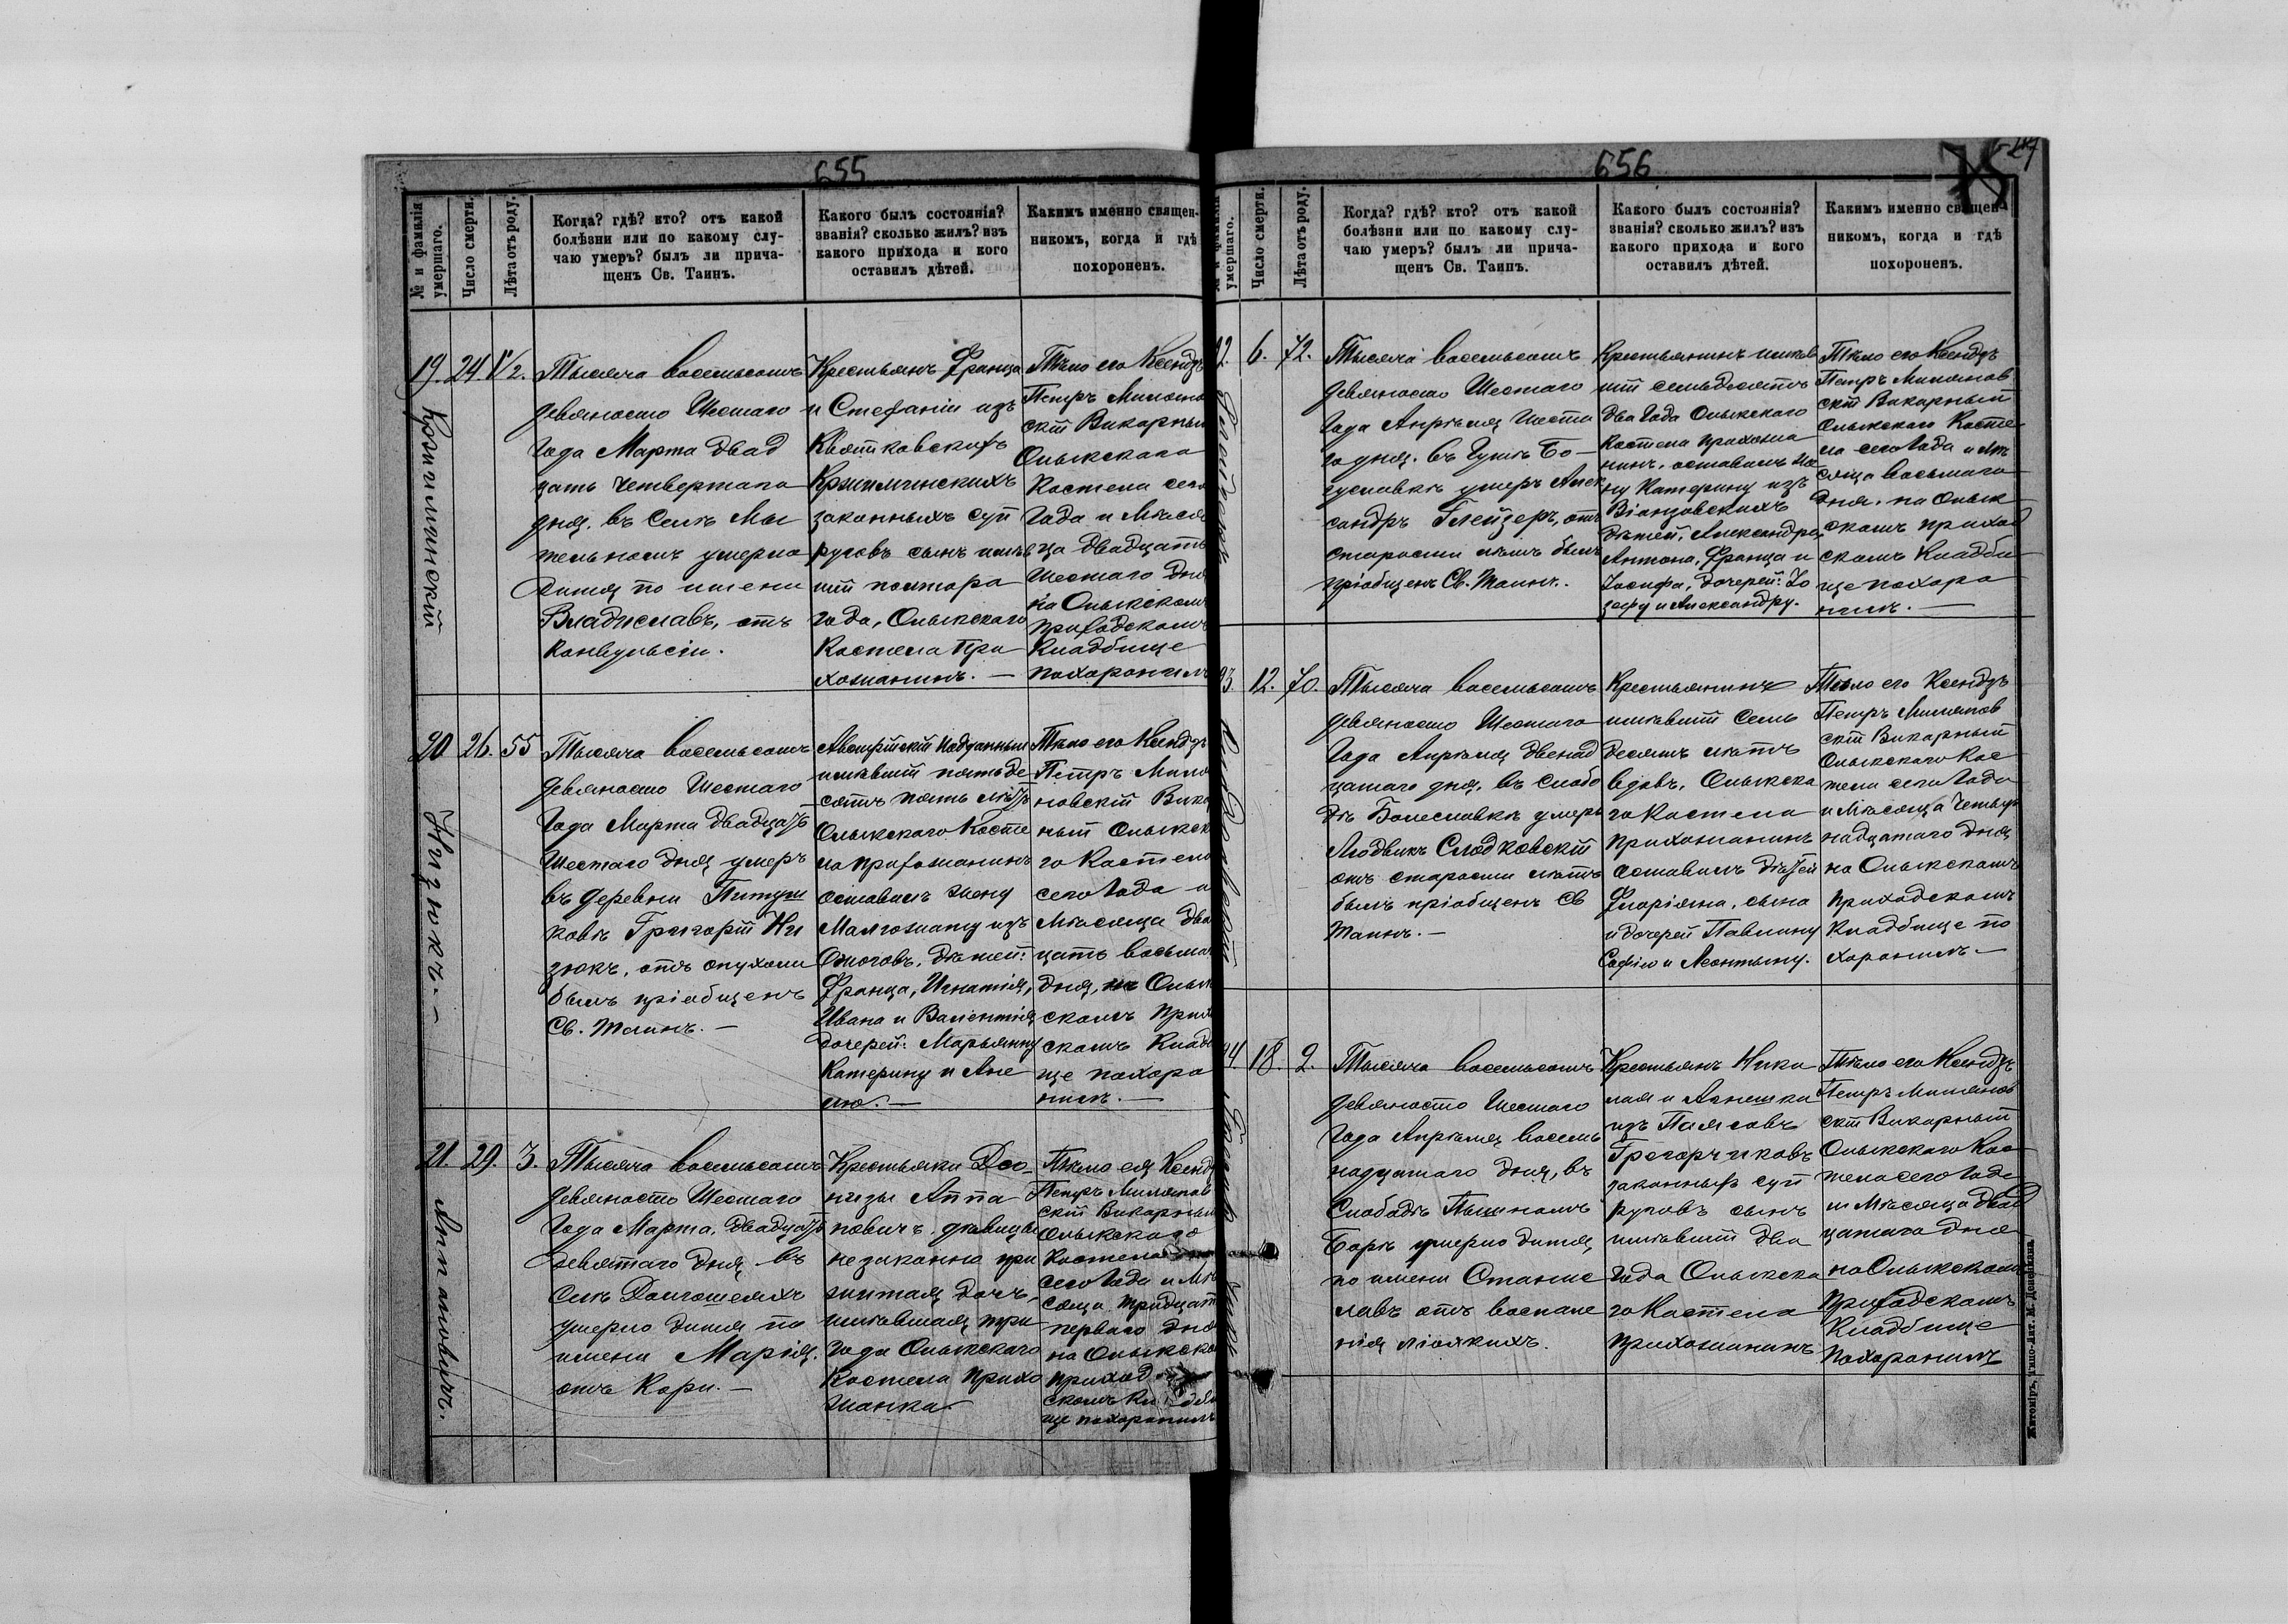 655
№ и фамилія умершаго.
Число смерти.
Лѣта отъ роду.
Когда? гдѣ? кто? отъ какой
болѣзни или по какому слу-
чаю умеръ? былъ ли прича-
щенъ Св. Таинъ.
Какого былъ состоянія?
званія? сколько жилъ? изъ
какого прихода и кого
оставилъ дѣтей.
Какимъ именно священ-
никомъ, когда и гдѣ
похороненъ.
19
24
1 1/2.
Тысяча восемьсотъ
девяносто Шестаго
Года Марта двад
цать Четвертаго
дня, въ Селѣ Мы
тельномъ умерло
дитя по имени
Владиславъ, отъ
Конвульсіи.
Крестьянъ Франца
и Стефаніи изъ
Квятковскихъ
законныхъ суп
руговъ сынъ имѣв
шій полтора
года, Олыкскаго
Костела При
хожанинъ. —
Тѣло его Ксендзъ
Петръ
скій Викарный
Олыкскаго
Костела сего
Года и Мѣся
ца двадцать
Шестаго дня
на Олыкскомъ
приходскомъ
Кладбище
похоронилъ
20
26.
55
Низюкъ. —
Тысяча восемьсотъ
девяносто Шестаго
Года Марта двадцать
Шестаго дня умеръ
въ деревни Питуш
ковѣ Григорій Ни
зюкъ, отъ опухоли
былъ пріобщенъ
Св. Таинъ. —
Австрійскій Подданный
имѣвшій пятьде
сятъ пять лѣтъ
Олыкскаго Косте
ла прихожанинъ
оставилъ жену
Малгожату изъ
дѣтей:
Франца, Игнатія,
Ивана и Валентія
дочерей: Марьянну
Катерину и Ане
лю. —
Тѣло его Ксендзъ
Петръ
новскій Вика
ный Олыкска
го Костела
сего Года и
Мѣсяца два
цать восьмаго
дня, на Олык
скомъ Прих
скомъ Кладб
ще похоро
нилъ. —
21.
29.
3.
Антоновичъ.
Тысяча восемьсотъ
девяносто Шестаго
Года Марта, двадцать
девятаго дня въ
Селѣ Долгошеяхъ
умерло дитя по
имени Марія.
отъ Кори. —
Крестьянки Діо-
низы Анто
новичъ, дѣвицы
незаконно при
житая дочь,
имѣвшая три
года Олыкскаго
Костела Прихо
жанка
Тѣло ея Ксендз
Петръ
скій Викарный
Олыкскаго
Костела
сего Года и Мѣ
сяца тридцать
перваго дня
на Олыкско
приход
скомъ Кладб
ще похоронилъ
656
умершаго.
Число смерти.
Лѣта отъ роду.
Когда? гдѣ? кто? отъ какой
болѣзни или по какому слу-
чаю умеръ? былъ ли прича-
щенъ Св. Таинъ.
Какого былъ состоянія?
званія? сколько жилъ? изъ
какого прихода и кого
оставилъ дѣтей.
Какимъ именно священ-
никомъ, когда и гдѣ
похороненъ.
6.
72.
Тысяча восемьсотъ
девяносто Шестаго
Года Апрѣля Шеста
го дня, въ Гутѣ Бо-
гуславкѣ умеръ Алек
сандръ Глейзеръ, отъ
старости лѣтъ былъ
пріобщенъ Св. Таинъ.
Крестьянинъ имѣв
шій семьдесятъ
два Года Олыкскаго
Костела прихожа
нинъ, оставилъ же
ну Катерину изъ
дѣтей, Александра,
Антона, Франца и
Іосифа, дочерей: Іо
зефу и Александру.
Тѣло его Ксендзъ
Петръ
скій Викарный
Олыкскаго Косте
ла сего Года и Мѣ
сяца восьмаго
дня, на Олык
скомъ приход
скомъ Кладби
ще похоро
нилъ. —
12.
70.
Тысяча восемьсотъ
девяносто Шестаго
Года Апрѣля двенад
цатаго дня, въ Слабо
дѣ Болеславкѣ умеръ
Людвикъ Слодковскій
отъ старости лѣтъ
былъ пріобщенъ Св
Таинъ. —
Крестьянинъ
имѣвшій Семь
десятъ лѣтъ
вдовъ, Олыкска
го Костела
прихожанинъ
оставилъ дѣтей
Флоріяна, сына
и дочерей Павлину
Софію и Леонтыну.
Тѣло его Ксендзъ
Петръ
скій Викарный
Олыкскаго Кос
тела сего Года
и Мѣсяца Четыр
надцатаго дня
на Олыкскомъ
приходскомъ
Кладбище по
хоронилъ —
18.
2.
Тысяча восемьсотъ
девяносто Шестаго
Года Апрѣля восем
надцатаго дня, въ
Слободѣ Пышномъ
Борѣ умерло дитя
по имени Станис
лавъ отъ воспале
нія лёгкихъ.
Крестьянъ Нико
лая и Агнешки
изъ
законныхъ суп
руговъ сынъ
имѣвшій два
года Олыкска
го Костела
прихожанинъ
Тѣло его Ксендзъ
Петръ
скій Викарный
Олыкскаго Кос
тела сего Года
и Мѣсяца двад
цатаго дня
на Олыкскомъ
приходскомъ
Кладбище
похоронилъ